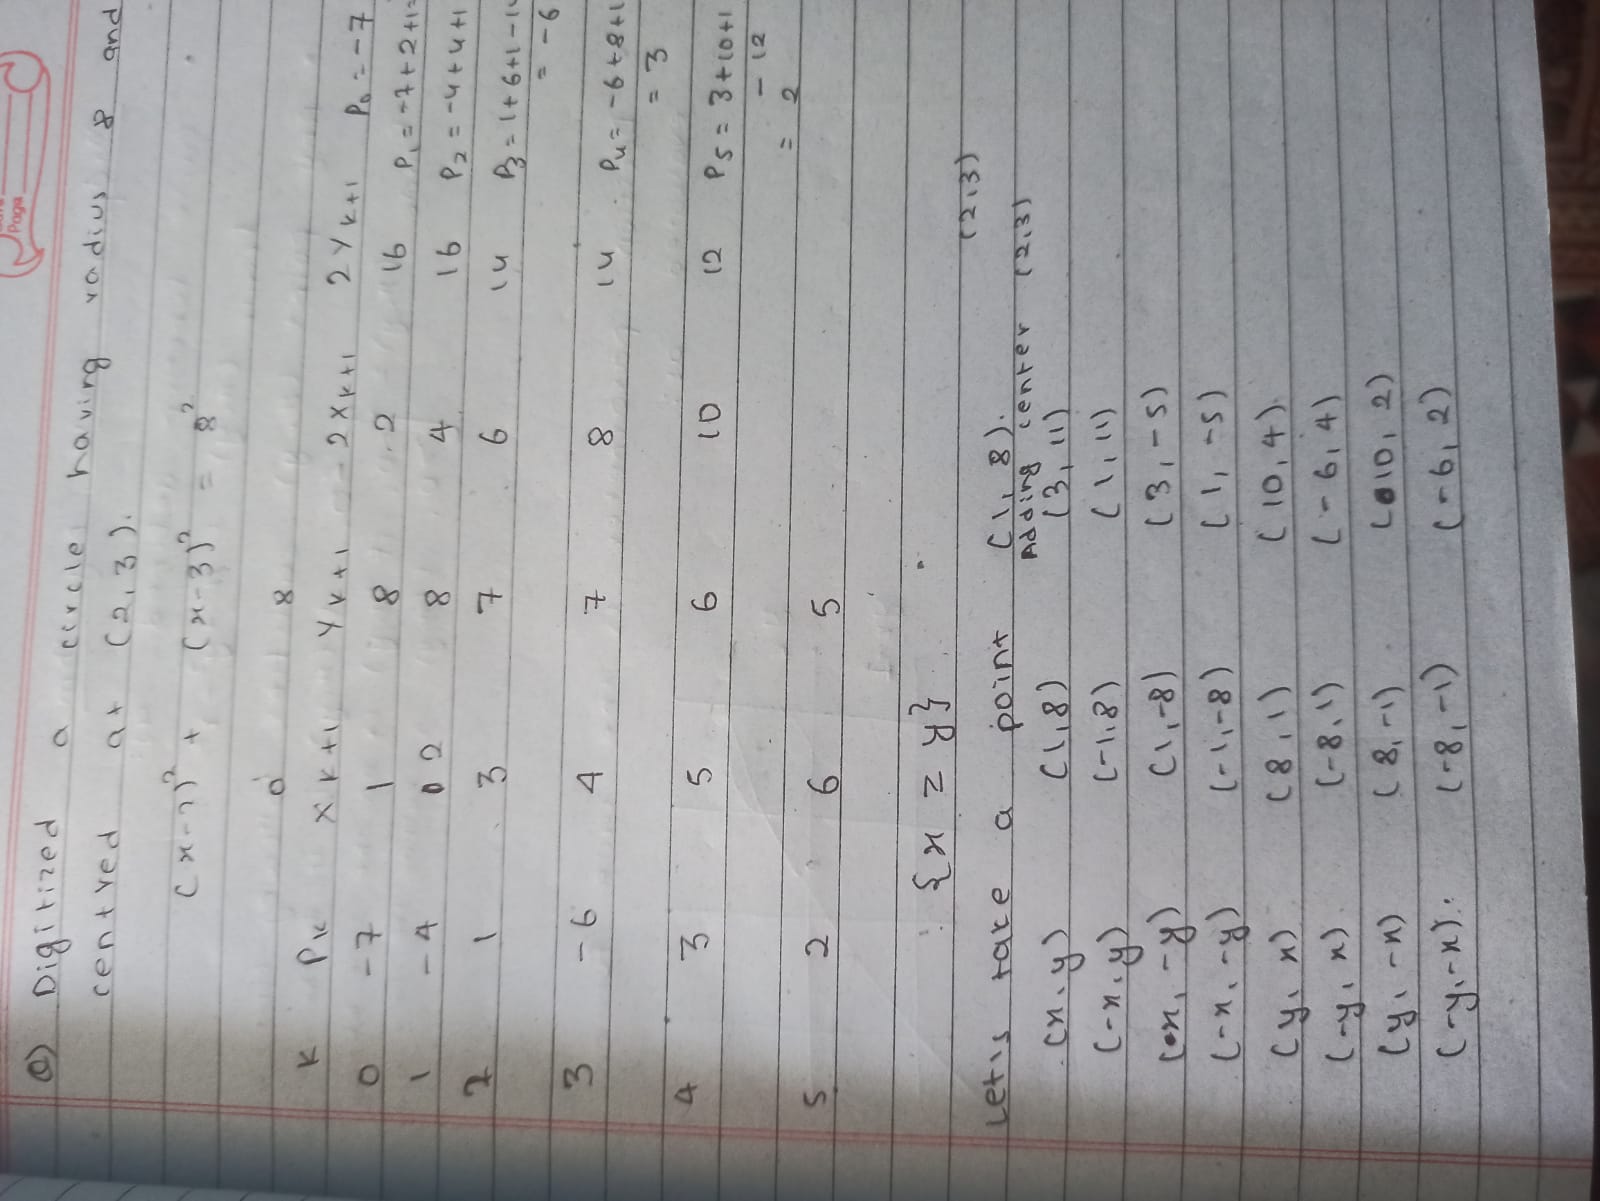 Page
Q) Digitized a circle having radius 8 and
centred at (2,3).
(x-2)² + (x-3)² = 8²
0 8
K Pk Xk+1 Yk+1 2Xk+1 2Yk+1 P0=-7
0 -7 1 8 2 16 P1=-7+2+1=
1 -4 2 8 4 16 P2=-4+4+1
2 1 3 7 6 14 P3=1+6+1-14
= -6
3 -6 4 7 8 14 P4=-6+8+1
= 3
4 3 5 6 10 12 P5=3+10+1
-12
= 2
5 2 6 5
{x ≥ y}
(2,3)
Let's take a point (1,8).
Adding center (2,3)
(x,y) (1,8) (3,11)
(-x,y) (-1,8) (1,11)
(x,-y) (1,-8) (3,-5)
(-x,-y) (-1,-8) (1,-5)
(y,x) (8,1) (10,4)
(-y,x) (-8,1) (-6,4)
(y,-x) (8,-1) (10,2)
(-y,-x). (-8,-1) (-6,2)